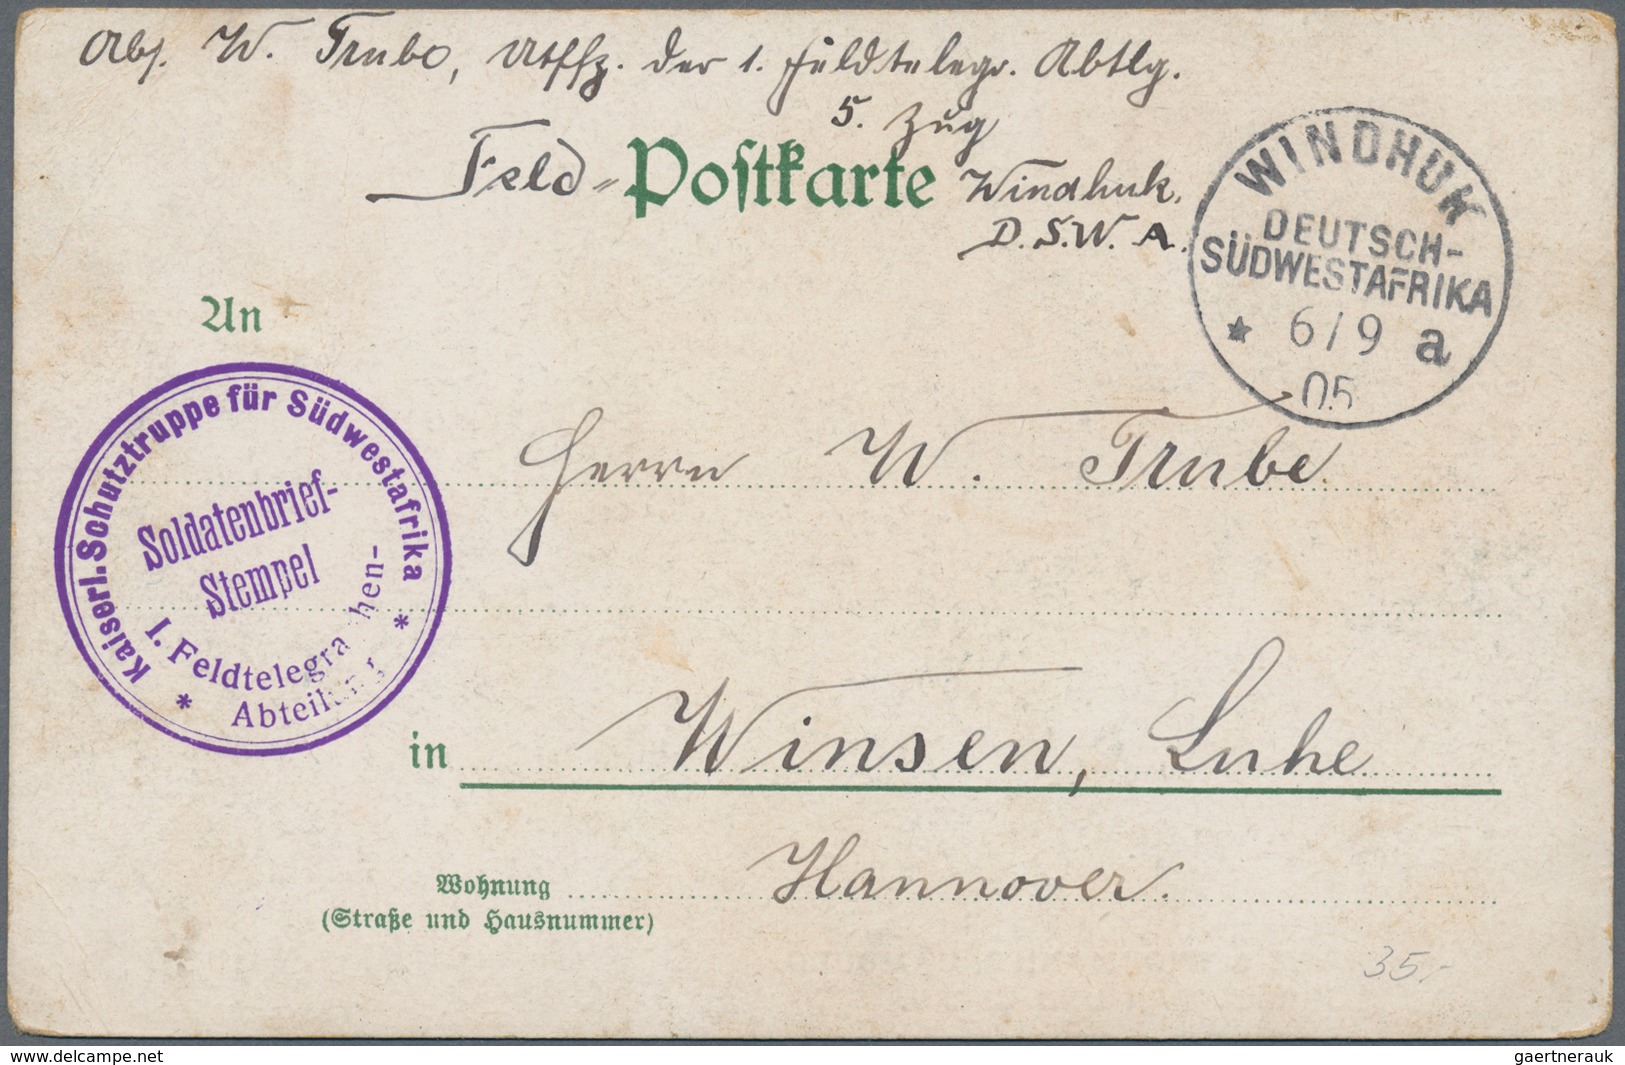 Abs. W. Trube, Utffz. der 1. Feldtelegr. Abtlg.
5. Zug
Feld= Postkarte Windhuk.
D.S.W.A.
WINDHUK
DEUTSCH-
SÜDWESTAFRIKA
* 6/9 a
05
An
Kaiserl. Schutztruppe für Südwestafrika
Soldatenbrief-
Stempel
* I. Feldtelegra hen- *
Abteilung
Herrn W. Trube
in Winsen, Luhe
Wohnung Hannover.
(Straße und Hausnummer)
35,-
www.delcampe.net
gaertnerauk